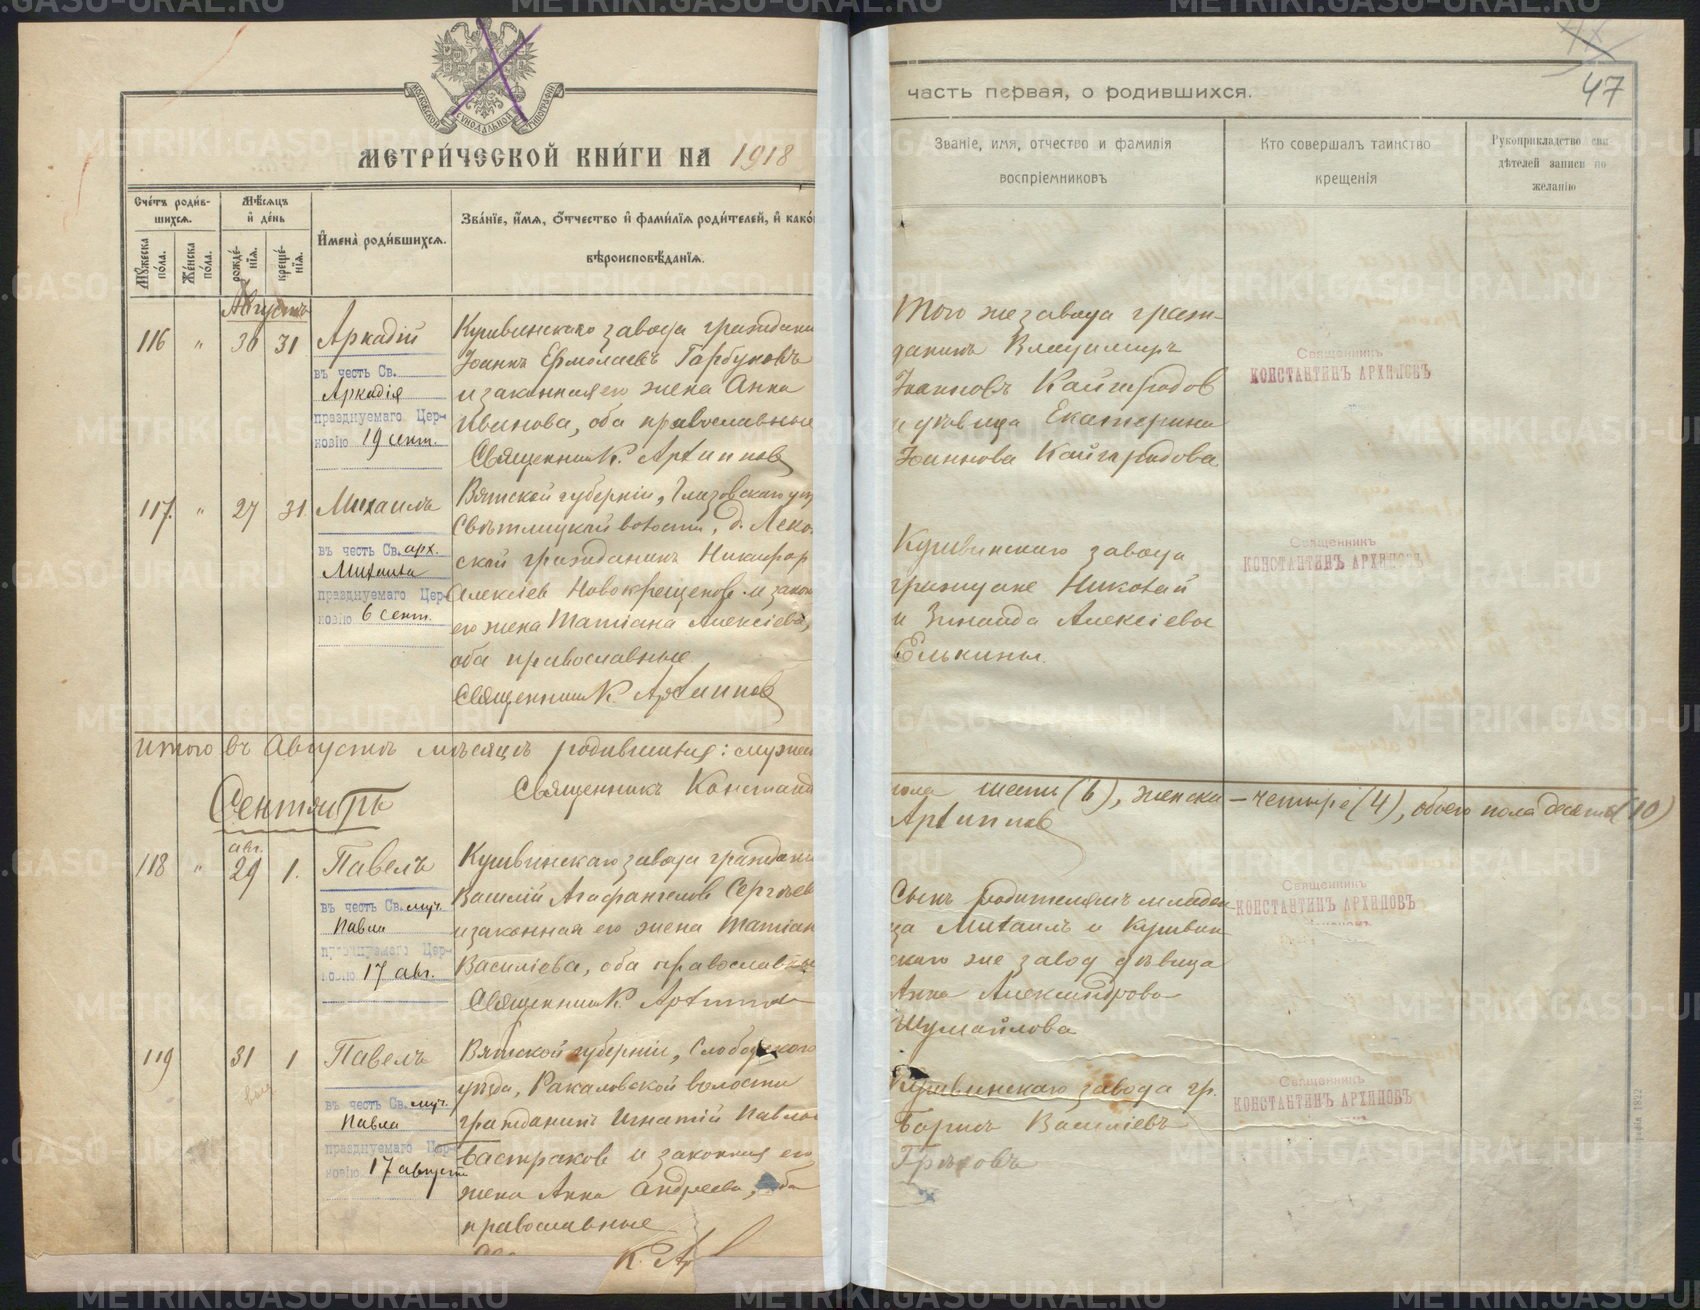 МЕТРИ́ЧЕСКОЙ КНИ́ГИ НА 1918
МОСКОВСКОЙ СУНОДАЛЬНОЙ ТИПОГРАФІИ
Сче́тъ роди́в-
шихсѧ.
Мѣ́сѧцъ
и҆ де́нь
Мꙋ́жеска
по́ла.
Же́нска
по́ла.
рожде́-
нїѧ.
креще́-
нїѧ.
И҆мена̀ роди́вшихсѧ.
Зва́нїе, и҆́мѧ, ѻ҆́тчество и҆ фами́лїѧ роди́телей, и҆ како́
вѣроисповѣ́данїѧ.
Августъ
116 " 30 31 Аркадій
въ честь Св.
Аркадія
празднуемаго Цер-
ковію 19 сент.
Кушвинскаго завода граждани
Іоаннъ Ермолаевъ Гарбуновъ
и законная его жена Анна
Иванова, оба православные
Священник К. Архипов
117. " 27 31. Михаилъ
въ честь Св. арх.
Михаила
празднуемаго Цер-
ковію 6 сент.
Вятской губерніи, Глазовскаго у
Свѣтлицкой волости, д. Леко
ской гражданинъ Никифор
Алексіев Новокрещенов и закон
его жена Татіана Алексіева,
оба православные
Священник К. Архипов
Итого въ Августѣ мѣсяцѣ родившихся: мужск
Священникъ Констант
Сентябрь
118 " авг. 29 1. Павелъ
въ честь Св. муч.
Павла
празднуемаго Цер-
ковію 17 авг.
Кушвинскаго завода граждани
Василій Агафангелов Сергѣев
и законная его жена Татіан
Василіева, оба православны
Священник К. Архипов
119 31 1 Павелъ
въ честь Св. муч.
Павла
празднуемаго Цер-
ковію 17 август
Вятской губерніи, Слободского
уѣзда, Ракаловской волости
гражданинъ Игнатій Павлов
Бастраков и законная его
жена Анна Андреева, оба
православные
К. Ар
часть первая, о родившихся.
47
Званіе, имя, отчество и фамилія
воспріемниковъ
Кто совершалъ таинство
крещенія
Рукоприкладство сви
дѣтелей записи по
желанію
Того же завода граж-
данинъ Владимиръ
Іоанновъ Кайгородов
и дѣвица Екатерина
Іоаннова Кайгородова
Священникъ
КОНСТАНТИНЪ АРХИПОВЪ
Кушвинскаго завода
граждане Николай
и Зинаида Алексіевы
Елькины.
Священникъ
КОНСТАНТИНЪ АРХИПОВЪ
пола шести (6), женска – четыре (4), обоего пола десять (10)
Архипов
Сынъ родителямъ младен
ца Михаилъ и Кушвин
скаго же завод дѣвица
Анна Александрова
Шумайлова
Священникъ
КОНСТАНТИНЪ АРХИПОВЪ
Кушвинскаго завода гр.
Борисъ Василіевъ
Грѣховъ
Священникъ
КОНСТАНТИНЪ АРХИПОВЪ
METRIKI.GASO-URAL.RU